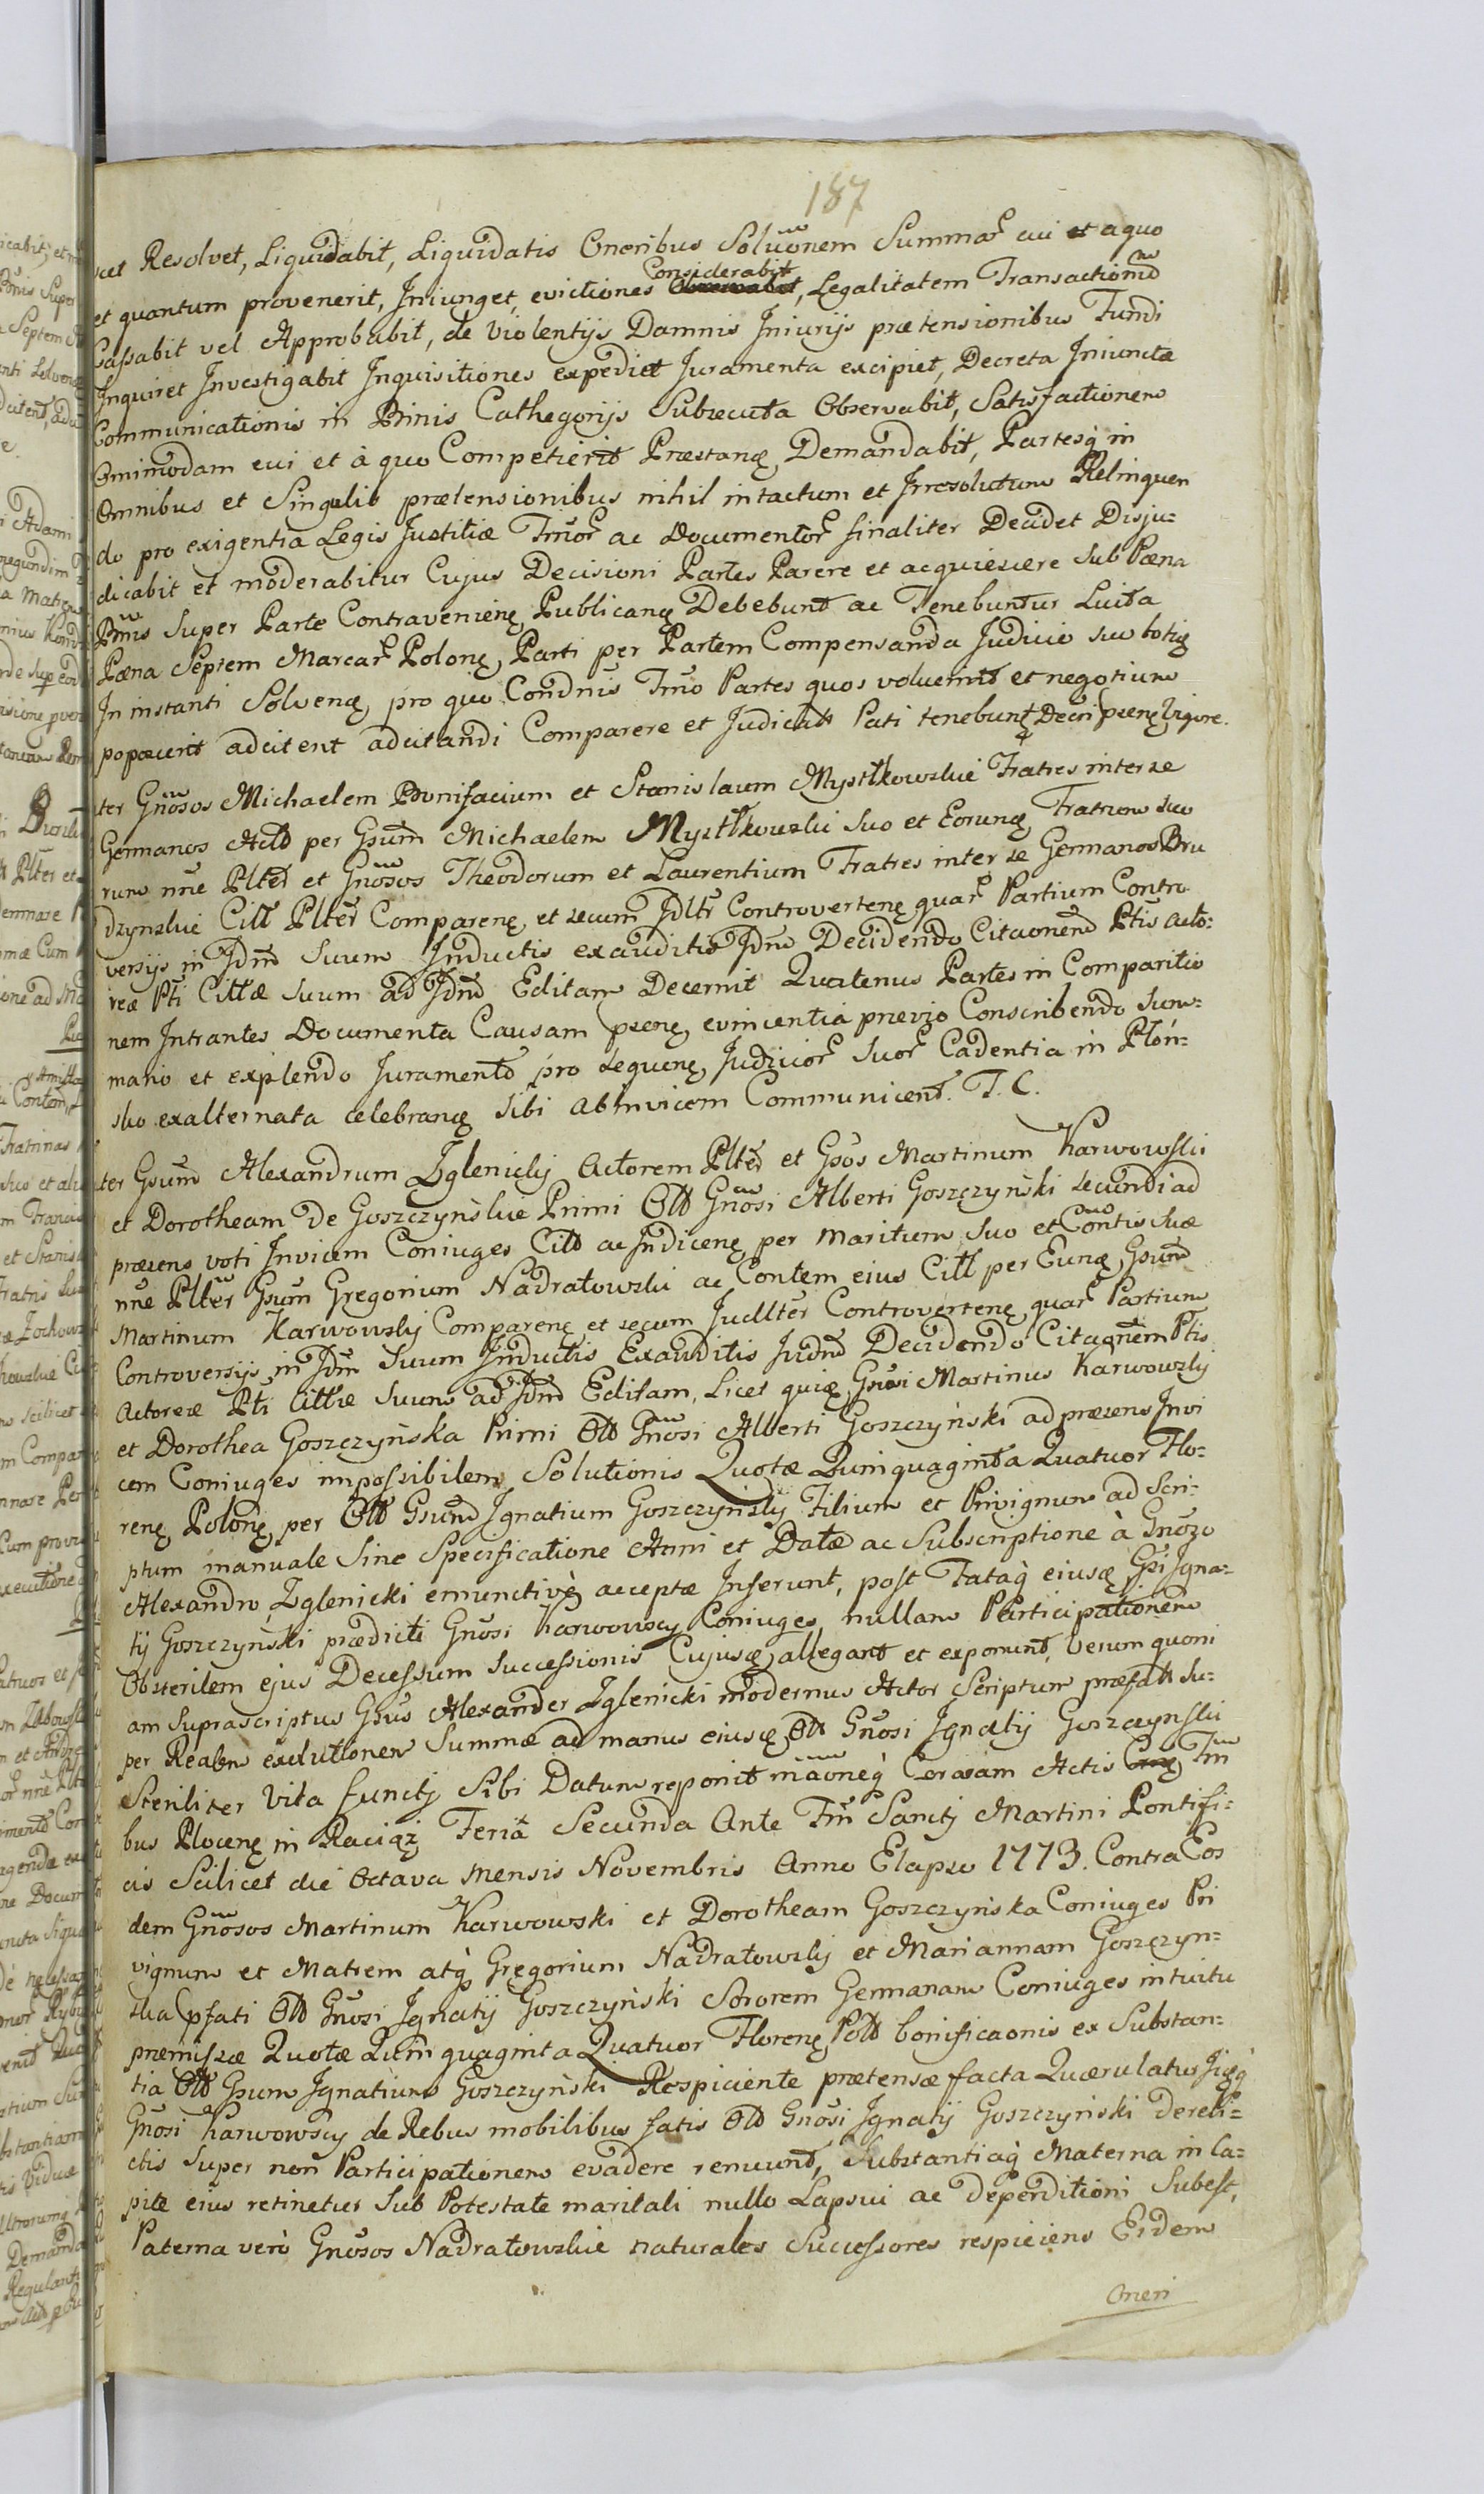 187
cet Resolvet, Liquidabit, Liquidatis Oneribus Soluõnem Summar cui et a quo
et quantum provenerit, Iniunget, evictiones Considerabit, Legalitatem Transactionũ
Cassabit vel Approbabit, de Violentijs Damnis Iniurijs prætensionibus Fundi
Inquiret Investigabit Inquisitiones expediet Juramenta excipiet, Decreta Iniunctæ
Communicationis in Binis Cathegorijs Subsecuta Observabit, Satisfactionem
Omnimodam cui et à quo Competierit Præstanę Demandabit, Partesq́ in
Omnibus et Singulis prætensionibus nihil intactum et Irresolutum Relinquen
do pro exigentia Legis Justitiæ Tm̃or ac Documentor finaliter Decidet Disju-
dicabit et moderabitur Cujus Decisioni Partes Parere et acquiescere Sub Pæna
Bm̃is Super Parte Contravenienę Publicanę Debebunt ac Tenebuntur Luita
Pæna Septem Marcar Polonę, Parti per Partem Compensanda Judicio suo totię
In instanti Solvenę, pro quo Condnĩs Tm̃o Partes quos voluerint et negotium
poposcerit adcitent adcitandi Comparere et Judicatt Pati tenebunt Decri psenę Vigore.
ter Gnõsos Michaelem Bonifacium et Stanislaum Mystkowskie Fratres inter se
Germanos Actt per Gsum Michaelem Mystkowski Suo et Eorunę Fratrum suo
rum nñe Pltẽr et Gnõsos Theodorum et Laurentium Fratres inter se Germanos Bru
dzynskie Citt Pltẽr Comparenę et secum Jdltr Controvertenę quar Partium Contro
versijs in Jdm̃ Suum Inductis exauditis Jdm̃ Decidendo Citãonem Ptis Acto-
reæ Pti Cittæ Suum ad Jdm̃ Editam Decernit Quatenus Partes in Comparitio
nem Intrantes Documenta Causam psenę evincentia prævio Conscribendo Sum-
mario et explendo Juramento pro Sequenę Judicior Suor Cadentia in Płón-
sko exalternata celebranę Sibi Abinvicem Communicent. T. C.
ter Gsum Alexandrum Zglenicki Actorem Pltẽr et Gsos Martinum Karwowski
et Dorotheam de Goszczyńskie Primi Ott Gnõsi Alberti Goszczyński Secundi ad
præsens voti Invicem Coniuges Citt ac Indicenę per Maritum Suo et Contis Suæ
nñe Pltẽr Gsum Gregorium Nadratowski ac Contem eius Citt per Eunę Gsum
Martinum Karwowsky Comparenę et secum Judltẽr Controvertenę quar Partium
Controversijs in Jdm̃ Suum Inductis Exauditis Judm̃ Decidendo Citaõnem Ptis
Actoreæ Pti Cittæ Suum ad Jdm̃ Editam, Licet quię Gnõsi Martinus Karwowsky
et Dorothea Goszczyńska Primi Ott Gnõsi Alberti Goszczyński ad præsens Invi
cem Coniuges impossibilem Solutionis Quotæ Quinquaginta Quatuor Flo-
renę Polonę per Ott Gsum Ignatium Goszczyńsky Filium et Privignum ad Scri-
ptum manuale Sine Specificatione Anni et Datæ ac Subscriptione à Gnõso
Alexandro Zglenicki emunctivè acceptæ Inferunt, post Fataq́ eiusę Gsi Igna-
tij Goszczyński prædicti Gnõsi Karwowscy Coniuges nullam Participationem
Obsterilem ejus Decessum Successionis Cujusę allegant et exponunt, Verum quoni
am Suprascriptus Gsus Alexander Zglenicki modernus Actor Scriptum præfatt Su-
per Realem exolutionem Summæ ad manus eiusę Ott Gnõsi Ignatij Goszczynski
Steriliter Vita functy Sibi Datum reponit Coram Actis Tm̃
bus Plocenę in Raciąż Feria Secunda Ante Tm̃ Sancty Martini Pontifi-
cis Scilicet die Octava Mensis Novembris Anno Elapso 1773. Contra Eos
dem Gnõsos Martinum Karwowski et Dorotheam Goszczyńska Coniuges Pri
vignum et Matrem atq́ Gregorium Nadratowsky et Mariannam Goszczyn-
ska pfati Ott Gnõsi Ignatij Goszczyński Sororem Germanam Coniuges intuitu
præmissæ Quotæ Quinquaginta Quatuor Florenę Pol bonificaonis ex Substan-
tia Ott Gsum Ignatium Goszczyński Respiciente prætensæ facta Quærulatur
Gnõsi Karwowscy de Rebus mobilibus fatis Ott Gnõsi Ignatij Goszczyński dereli-
ctis Super non Participationem evadere renuunt, Substantiaq́ Materna in Ca-
pite eius retinetur Sub Potestate maritali nullo Lapsui ac Deperditioni Subest,
Paterna verò Gnõsos Nadratowskie naturales Successores respiciens Eidem
Oneri